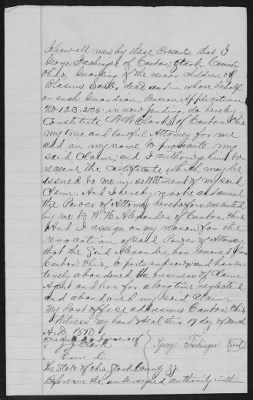 Know all men by these Presents that I
George of Canton Stark County
Ohio, Guardian of the minor children of
dead and in whose behalf
as such Guardian Pension Application
No 123.205 is now pending, do hereby
Constitute W. W. Clark of Canton Ohio
my true and lawful Attorney for me
and in my name to prosecute my
said Claim, and I authorize him to
receive the Certificate which may be
issued to me in settlement of my said
Claim. And I hereby revoke and annul
the Power of Attorney heretofore executed
by me to W. K. Alexander of Canton, Ohio
And I assign as my reason for the
revocation of said Power of Attorney
that the said Alexander, has removed from
Canton Ohio,
abandoned the business of Claim
Agent and has for a long time neglected
and abandoned my said Claim
My Post office address is Canton Ohio
Witness my hand & seal this 19 day of March
A.D. 1870
Executed in presence of
Clark
George
The State of Ohio, Stark County SS
Before me the undersigned authority within